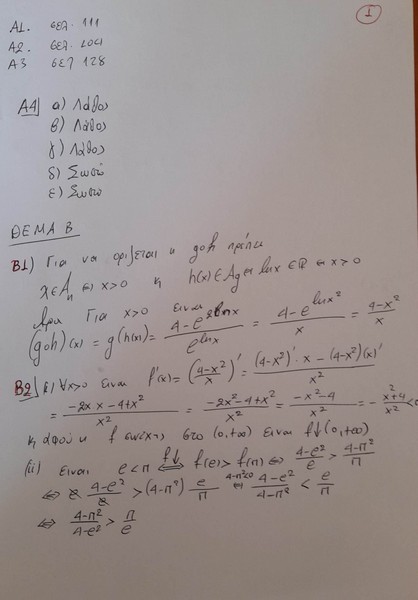 1
A1. σελ. 111
A2. σελ. 104
A3 σελ 128
A4 α) Λάθος
β) Λάθος
γ) Λάθος
δ) Σωστό
ε) Σωστό
ΘΕΜΑ Β
B1) Για να ορίζεται η goh πρέπει
x∈A_h ⇔ x>0 κ h(x)∈A_g ⇔ lnx∈ℝ ⇔ x>0
Άρα Για x>0 είναι
(goh)(x) = g(h(x)) = (4-e^{2lnx})/(e^{lnx}) = (4-e^{lnx^2})/x = (4-x^2)/x
B2) i) ∀x>0 είναι f'(x) = ((4-x^2)/x)' = ((4-x^2)'·x-(4-x^2)(x)')/x^2
= (-2x·x-4+x^2)/x^2 = (-2x^2-4+x^2)/x^2 = (-x^2-4)/x^2 = -(x^2+4)/x^2 <0
κ αφού η f συνεχής στο (0,+∞) είναι f↓(0,+∞)
(ii) είναι e<π ⇔^{f↓} f(e)>f(π) ⇔ (4-e^2)/e > (4-π^2)/π
⇔ e (4-e^2)/e > (4-π^2) e/π ⇔^{4-π^2<0} (4-e^2)/(4-π^2) < e/π
⇔ (4-π^2)/(4-e^2) > π/e